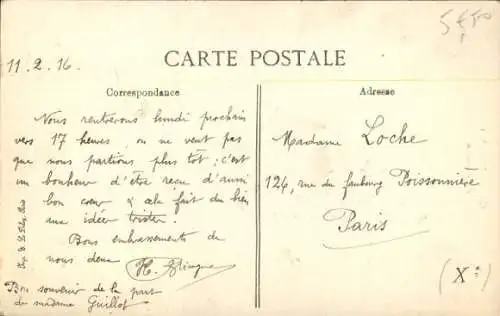 5€50
11.2.16
CARTE POSTALE
Correspondance
Adresse
Nous rentrerons lundi prochain
vers 17 heures, on ne veut pas
que nous partions plus tôt ; c'est
un bonheur d'être reçu d'aussi
bon cœur & cela fait du bien
aux idées tristes.
Bons embrassements de
nous deux
Bon souvenir de la part
de madame Guillot
Madame Loche
126, rue du faubourg Poissonnière
Paris
(X°)